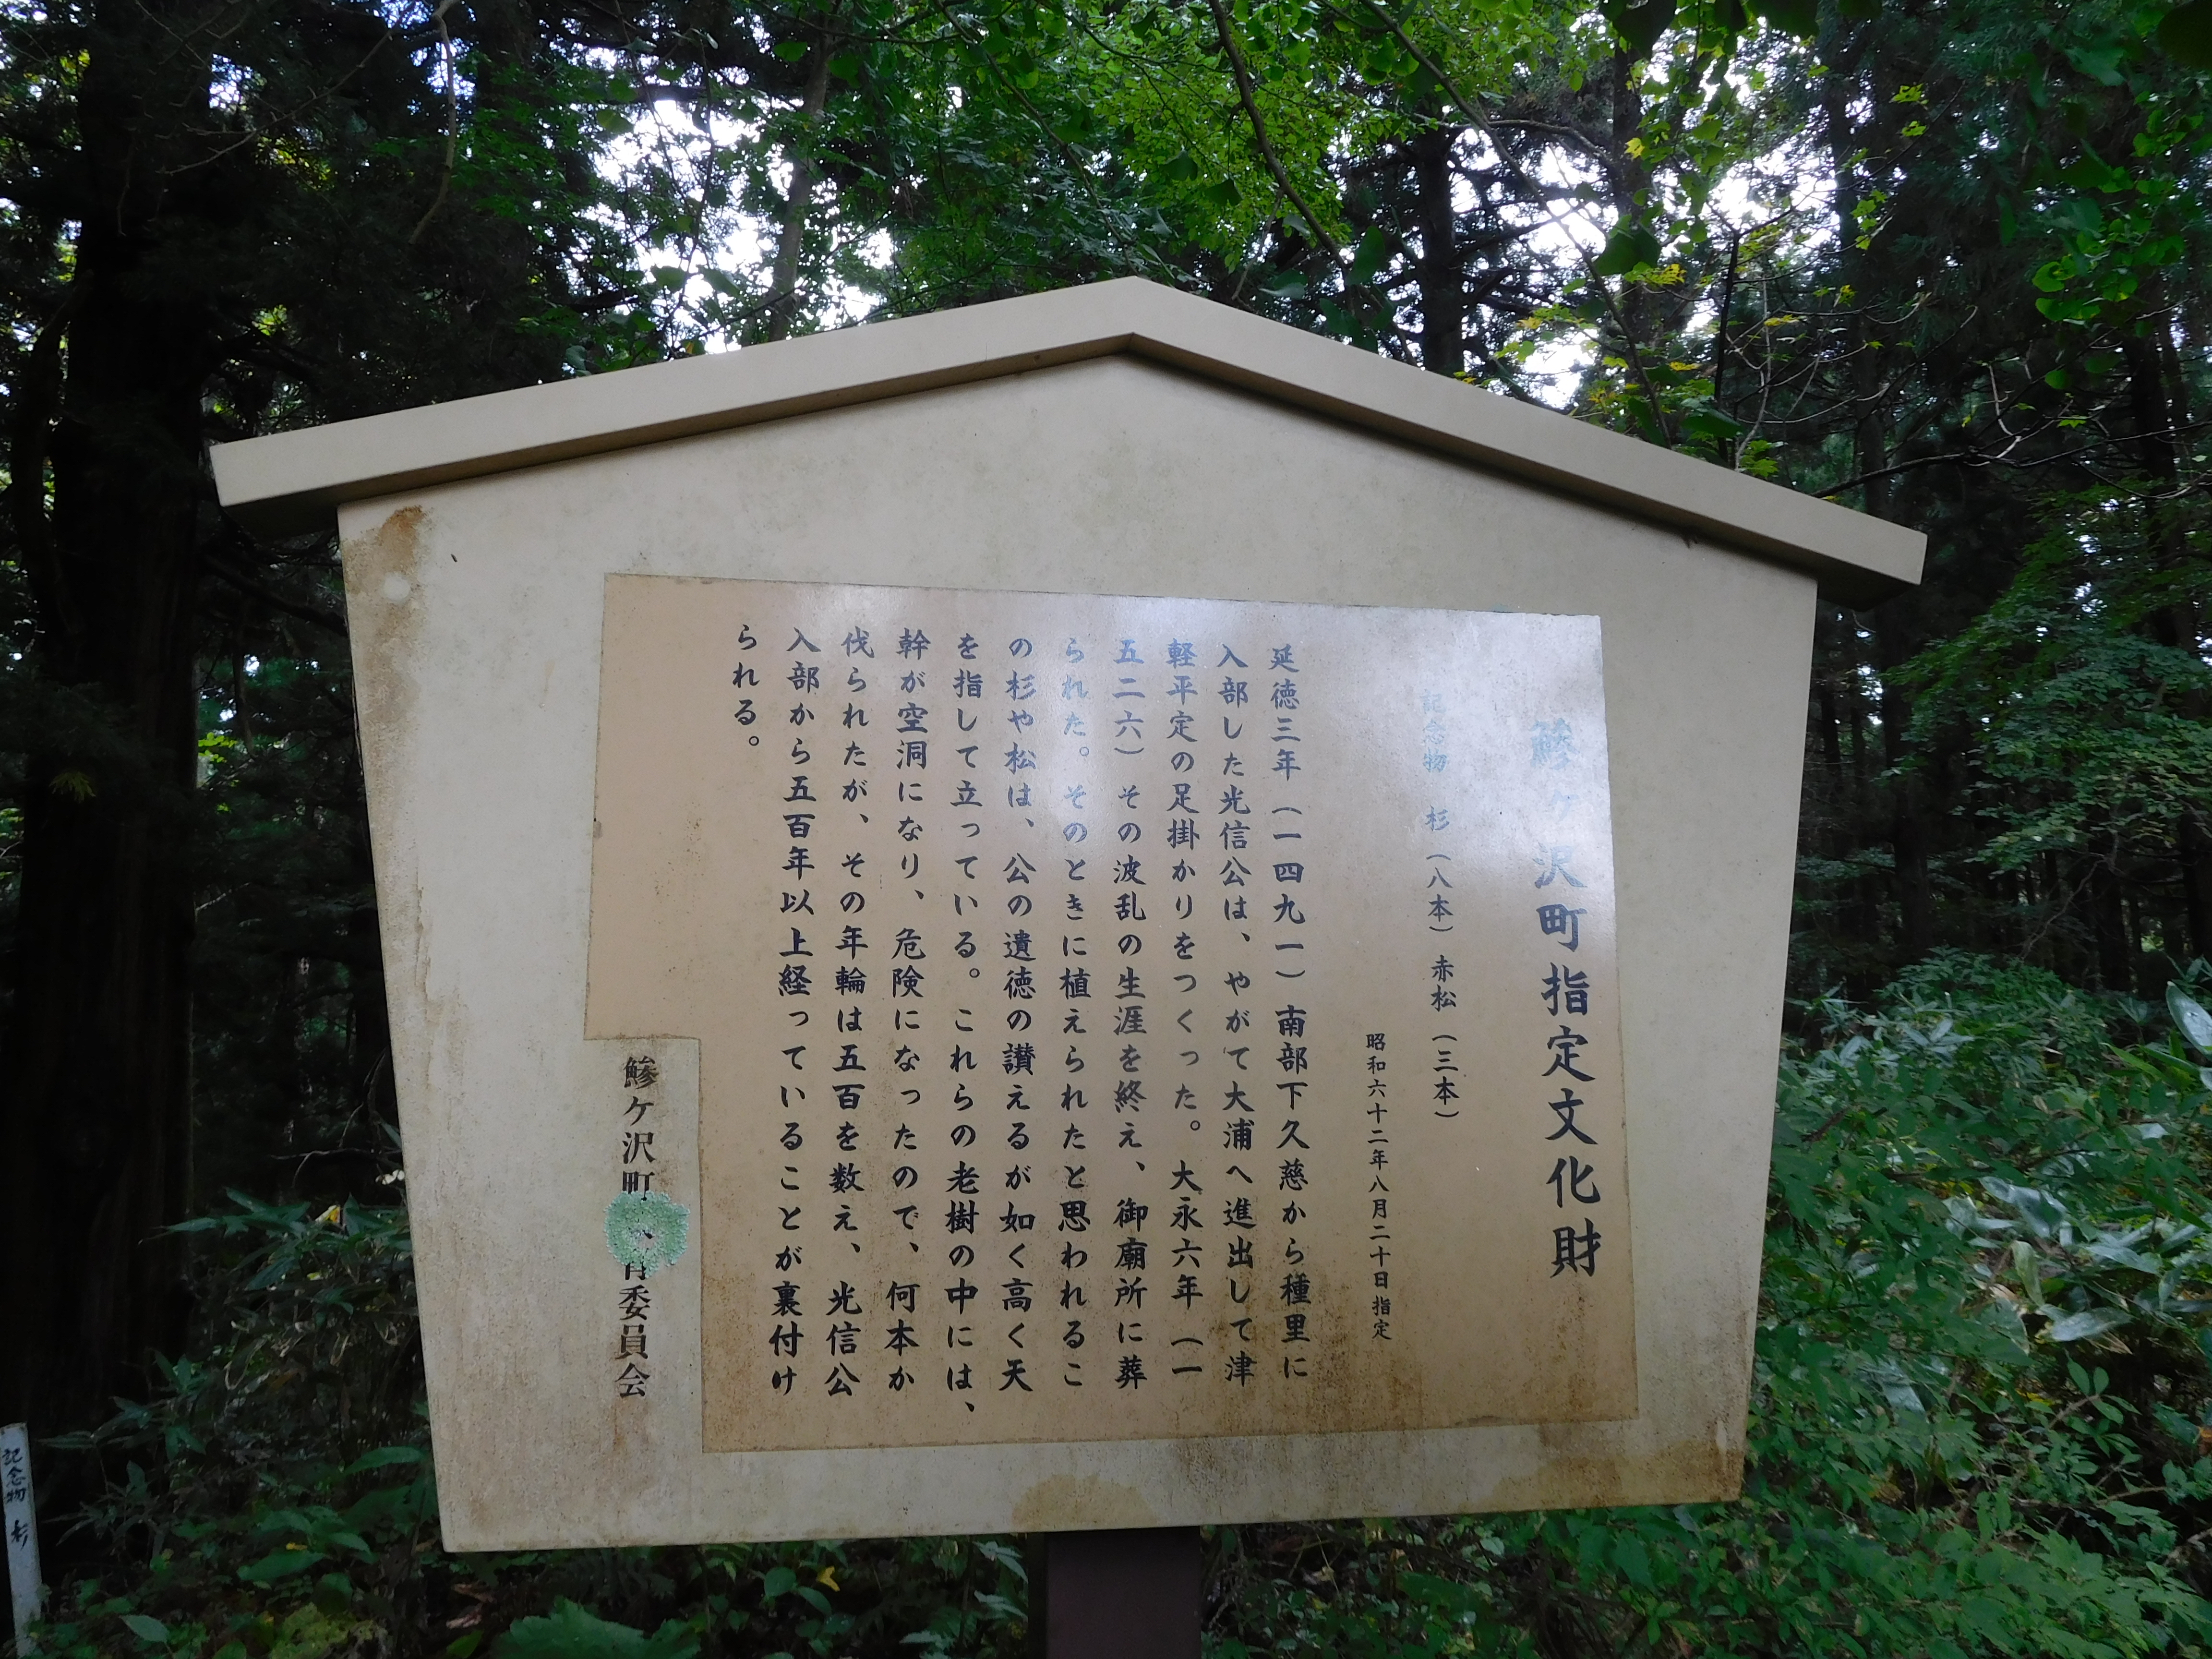 鰺ヶ沢町指定文化財
記念物 杉(八本)赤松(三本)
昭和六十二年八月二十日指定
延徳三年(一四九一)南部下久慈から種里に
入部した光信公は、やがて大浦へ進出して津
軽平定の足掛かりをつくった。大永六年(一
五二六)その波乱の生涯を終え、御廟所に葬
られた。そのときに植えられたと思われるこ
の杉や松は、公の遺徳の讃えるが如く高く天
を指して立っている。これらの老樹の中には、
幹が空洞になり、危険になったので、何本か
伐られたが、その年輪は五百を数え、光信公
入部から五百年以上経っていることが裏付け
られる。
鰺ケ沢町 育委員会
記念物 杉